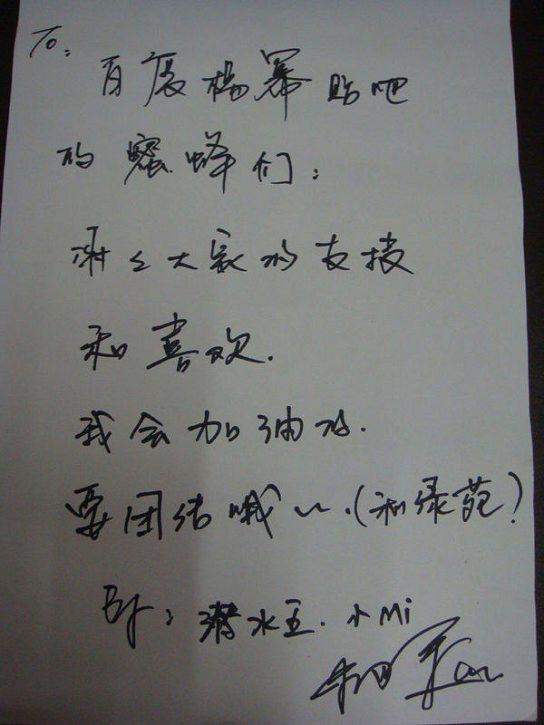 To:
百度杨幂贴吧
的蜜蜂们:
谢谢大家的支持
和喜欢.
我会加油的.
要团结哦~.(和绿苑)
By: 潜水王.小Mi
杨幂